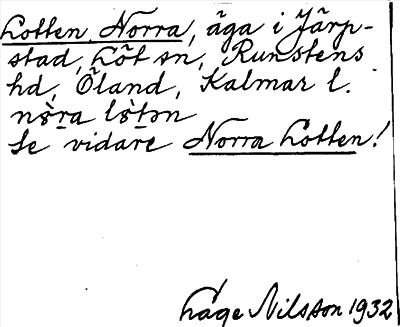 Lotten, Norra, äga i Järp-
stad, Löt sn, Runstens
hd, Öland, Kalmar l.
Se vidare Norra Lotten!
Låge Nilsson 1932